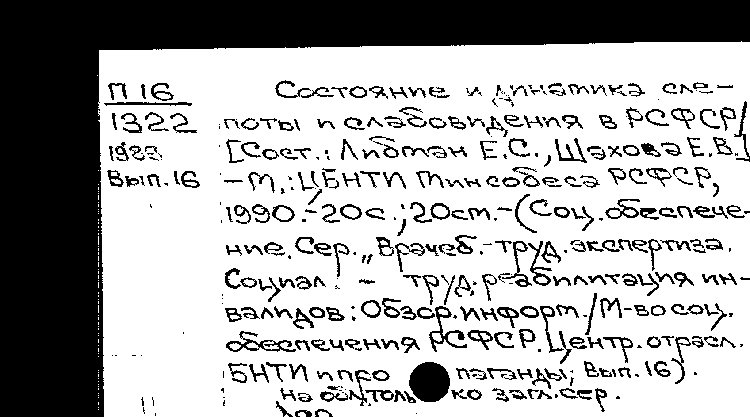 П 16
1322
1989
Вып. 16
Состояние и динамика сле-
поты и слабовидения в РСФСР/
[Сост.: Либман Е.С., Шахова Е.В.]
– М.: ЦБНТИ Минсобеса РСФСР,
1990. – 20с.; 20см. – (Соц. обеспече-
ние. Сер. „Врачеб.-труд. экспертиза.
Социал. – труд. реабилитация ин-
валидов: Обзор. информ./М-во соц.
обеспечения РСФСР. Центр. отрасл.
БНТИ и про паганды; Вып. 16).
На обл. толь ко загл. сер.